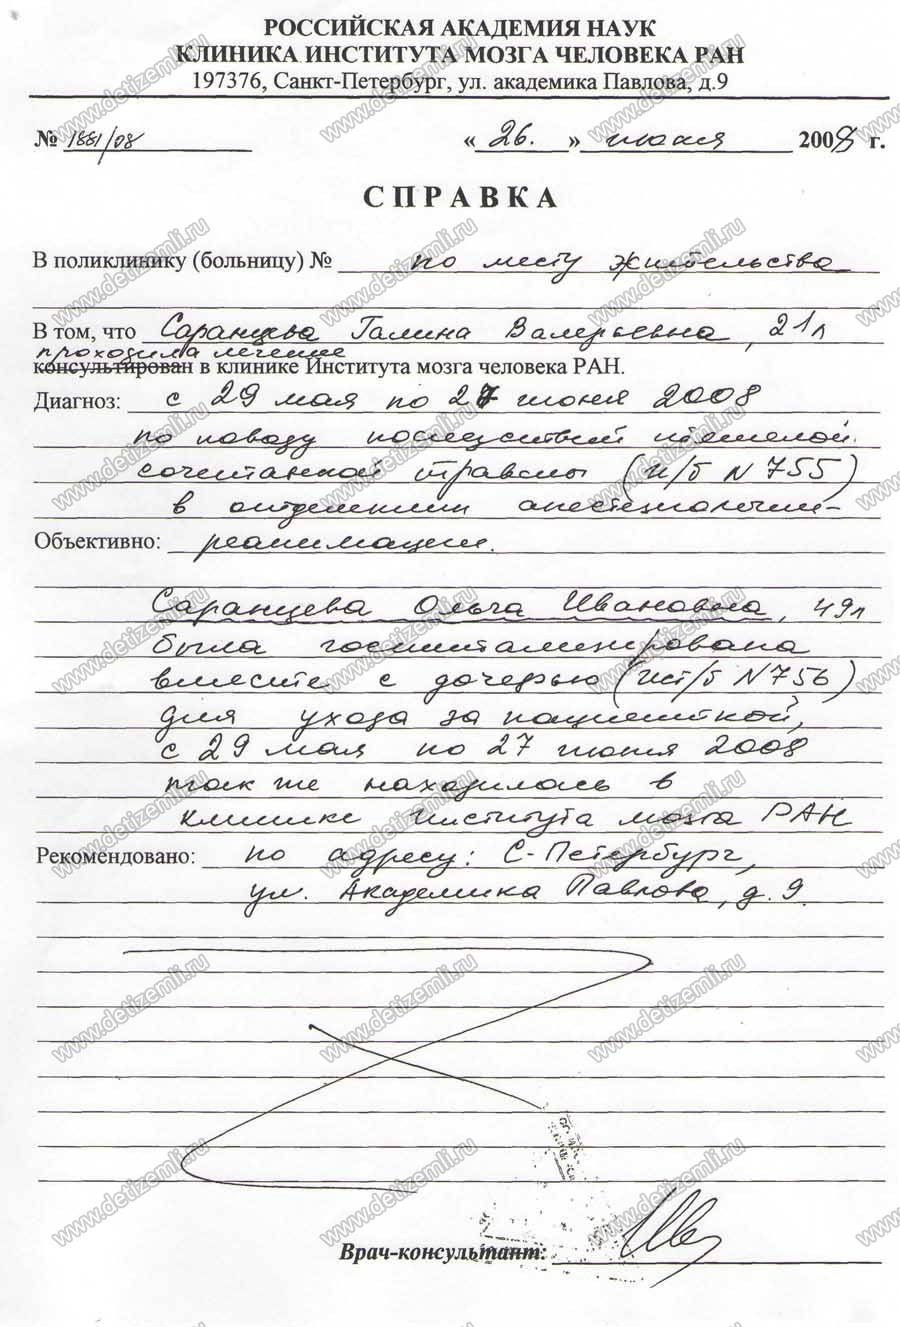 РОССИЙСКАЯ АКАДЕМИЯ НАУК
КЛИНИКА ИНСТИТУТА МОЗГА ЧЕЛОВЕКА РАН
197376, Санкт-Петербург, ул. академика Павлова, д.9
№ 1881/08 «26.» июня 2008 г.
СПРАВКА
В поликлинику (больницу) № по месту жительства
В том, что Саранцева Галина Валерьевна, 21л
проходила лечение
консультирован в клинике Института мозга человека РАН.
Диагноз: с 29 мая по 27 июня 2008
по поводу последствий тяжелой
сочетанной травмы (и/б N 755)
в отделении анестезиологии-
Объективно: реанимации.
Саранцева Ольга Ивановна, 49л
была госпитализирована
вместе с дочерью (ист/б N 756)
для ухода за пациенткой,
с 29 мая по 27 июня 2008
так же находилась в
клинике института мозга РАН
Рекомендовано: по адресу: С-Петербург,
ул. Академика Павлова, д. 9.
Врач-консультант:
www.detizemli.ru